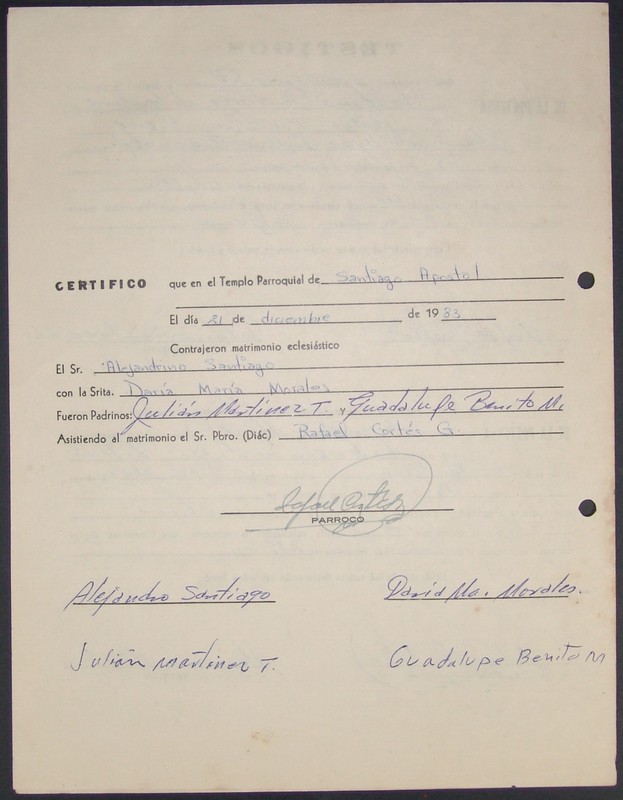 CERTIFICO que en el Templo Parroquial de Santiago Apostol
El día 21 de diciembre de 1983
Contrajeron matrimonio eclesiástico
El Sr. Alejandrino Santiago
con la Srita. Daría María Morales
Fueron Padrinos: Julián Martinez T. y Guadalupe Benito M.
Asistiendo al matrimonio el Sr. Pbro. (Diác) Rafael Cortés G.
PARROCO
Alejandro Santiago Daria Ma. Morales.
Julián Martinez T. Guadalupe Benito M